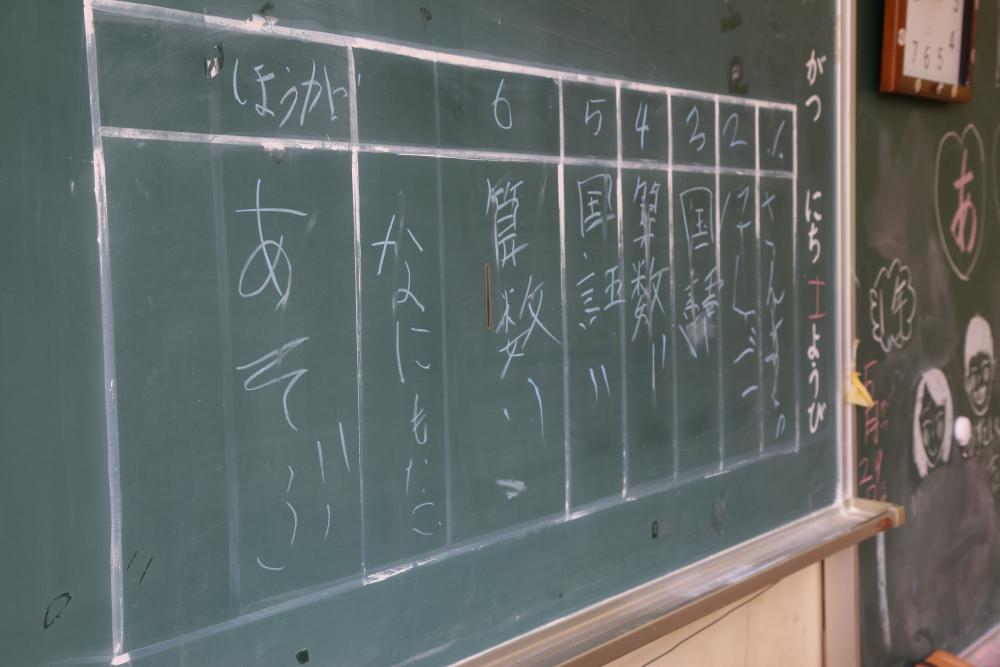 がつ にち 土ようび
1
さんすう
2
3
国語
4
算数 !!
5
国語 !!
6
算数
かなにもない
ほうか
あそ
あ
5月
7 6 5 4